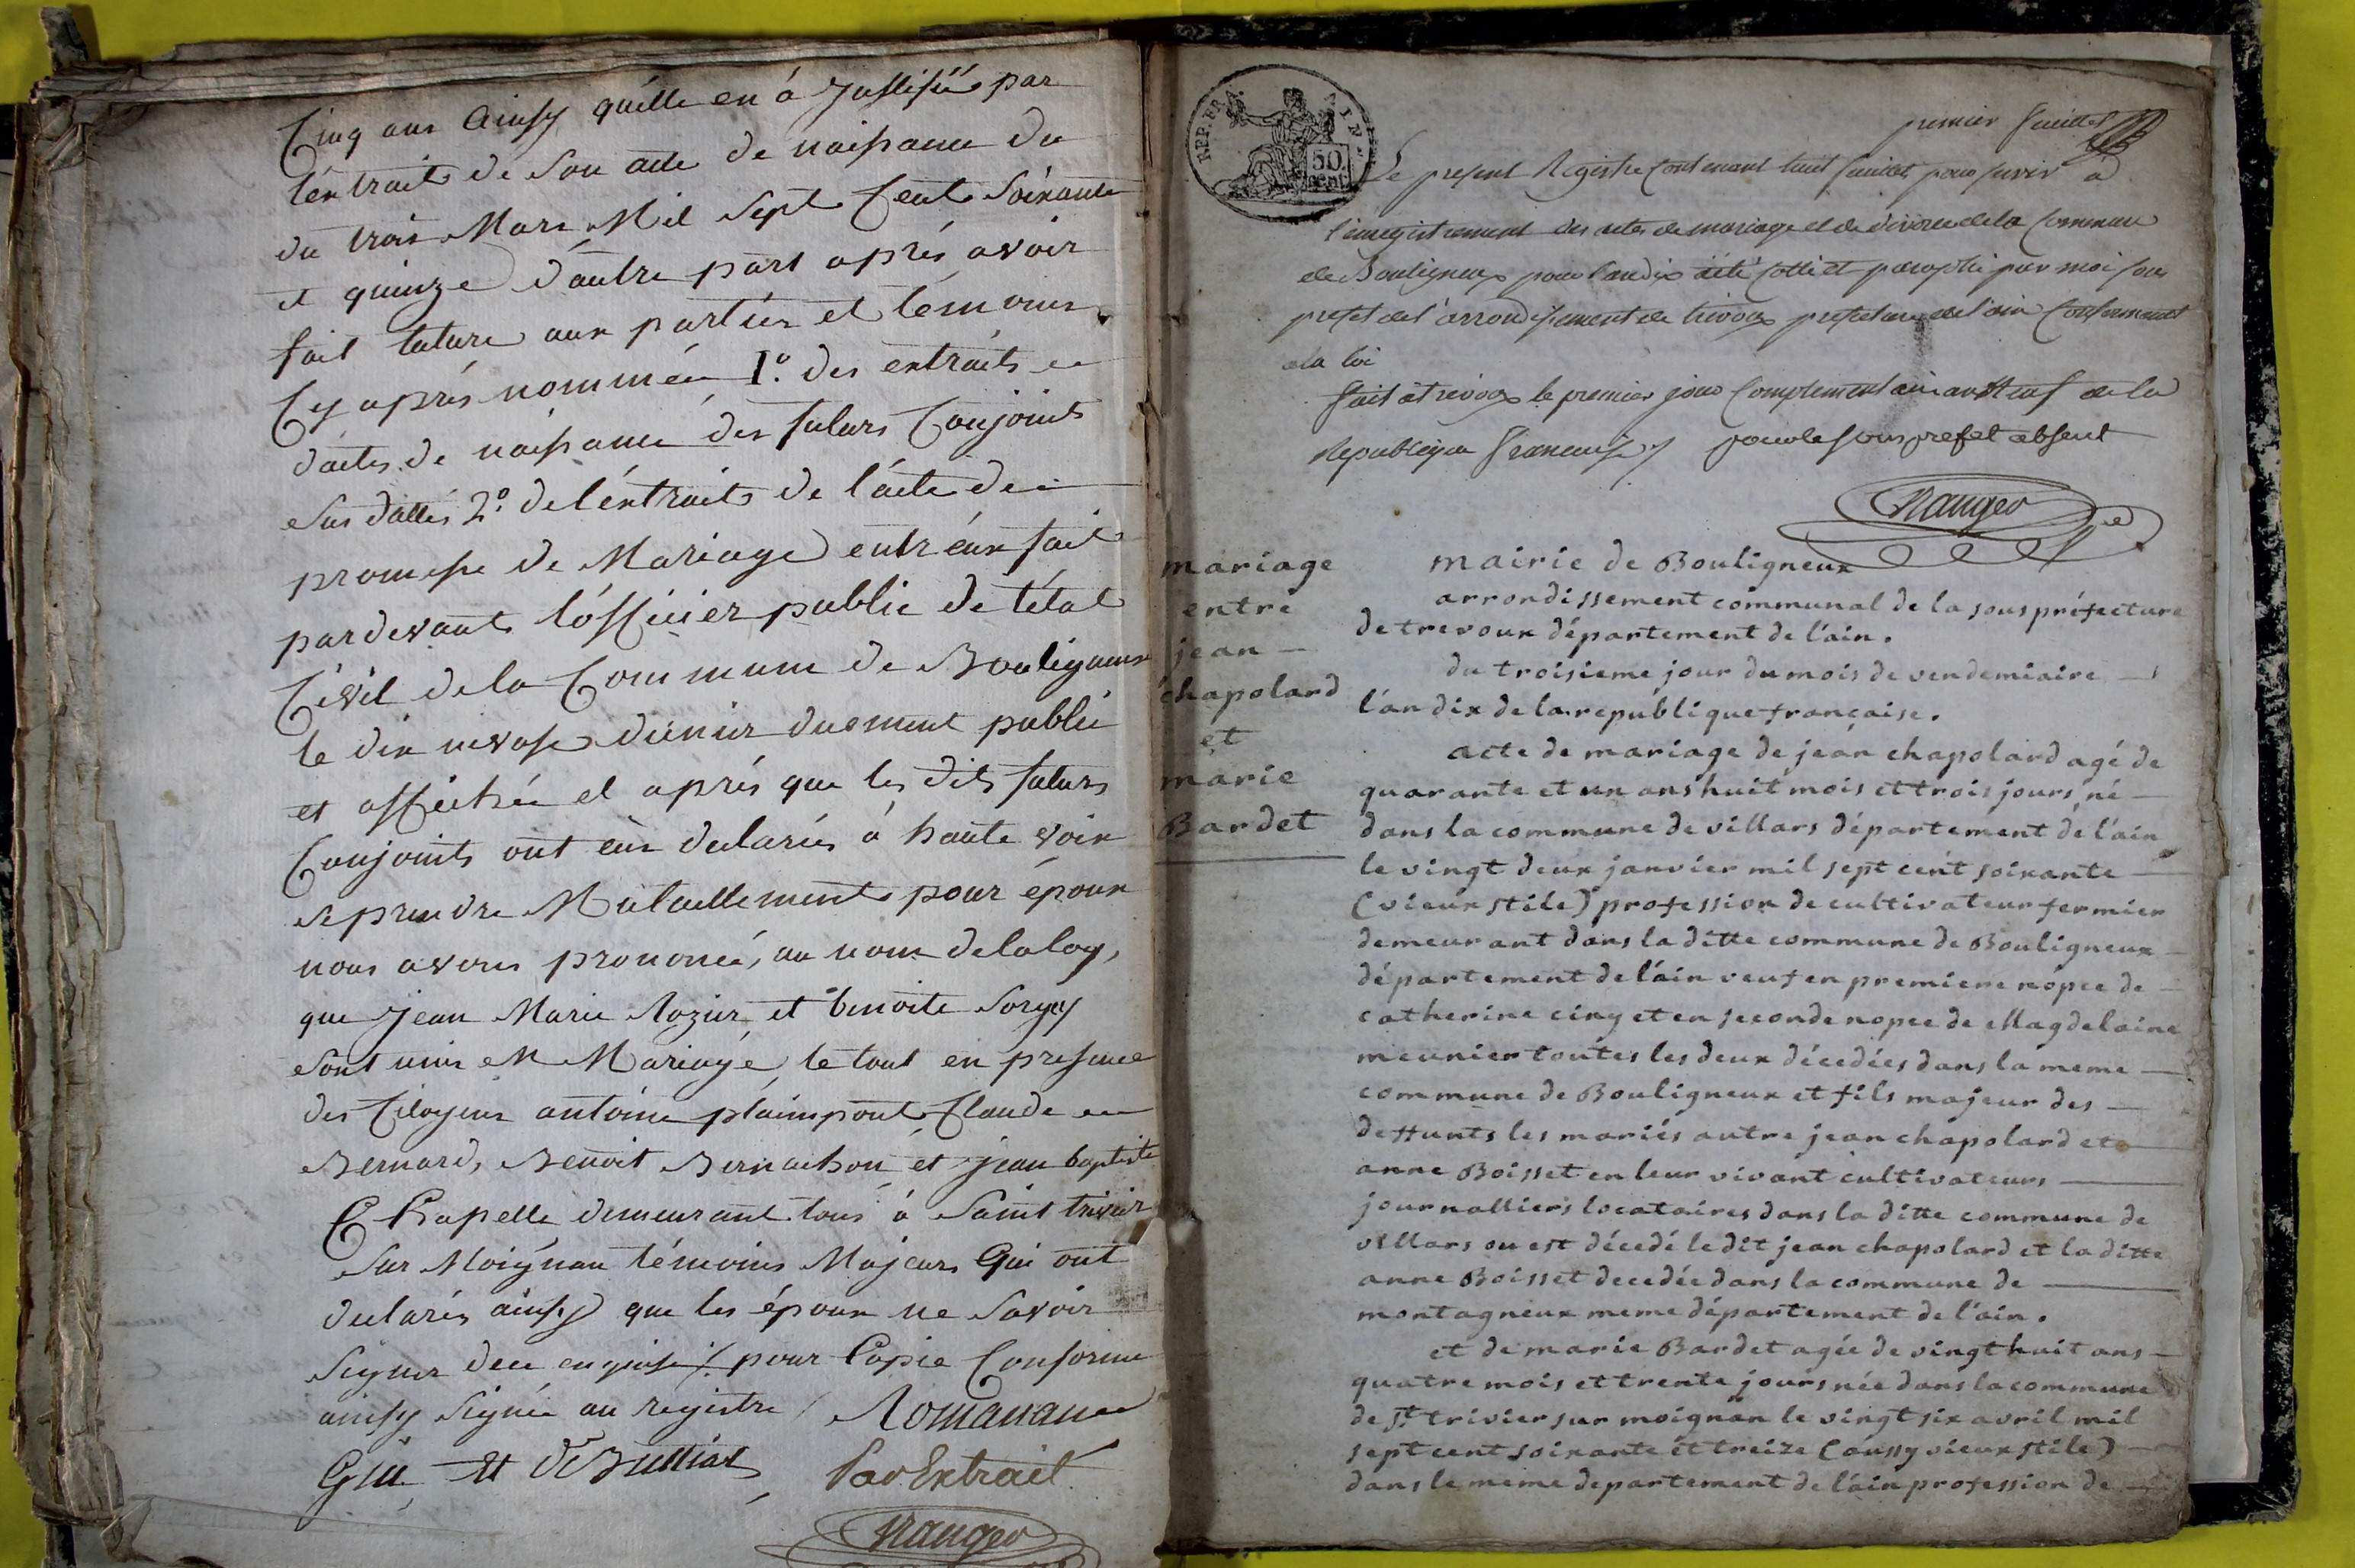 Cinq ans Ainsy quélle en á Justifiée par
l'éxtrait de Son acte de naissance du
du trois Mars Mil Sept Cent Soixante
et quinze d'autre part aprés avoir
fait lature aux partiés et témoins
Cy aprés nommés 1º. des extraits
d'actes de naissance des futurs Conjoints
Sus dattés 2º. de l'éxtrait de l'acte de
promesse de Mariage entr'eux fait
pardevant l'officier public de l'état
Civil de la Commune de Bouligneux
le dix nivose dernier duement publié
et affichée et aprés que les dits futurs
Conjoints ont eús declarés á haute voix
se prendre Mutuellement pour épour
nous avons prononcé, au nom de la loy,
que Jean Marie Rozier et benoite Sorgay
Sont unis en Mariage, le tout en presence
des Citoyens antoine plainpont Claude
Bernard, Benoit Bernachon et Jean baptiste
Chapelle demeurant tous á Saint trivier
Sur Moignan témoins Majeurs Qui ont
declarés ainsy que les époux ne Savoir
Signer de ce enquis ./. pour Copie Conforme
ainsy Signée au registre / Romanan
Par Extrait
Naugeo
REP. FRA.
AIN
50
premier feuillet
Le present Registre Contenant huit feuillets pour servir a
l'enregistrement des actes de mariage et de divorce de la Commune
de Bouligneux pour l'an dix a été cotté et paraphé par moi sous
prefet de l'arrondissement de trevoux prefecture de l'ain Conformement
a la loi
fait a trevoux le premier jour Complementaire an neuf de la
Republique francaise / pour le sous prefet absent
Naugeo
mariage
entre
jean —
chapolard
et
marie
Bardet
mairie de Bouligneux
arrondissement communal de la sous préfecture
de trevoux département de l'ain.
du troisieme jour du mois de vendemiaire —
l'an dix de la republique française.
acte de mariage de jean chapolard agé de
quarante et un ans huit mois et trois jours, né —
dans la commune de villars département de l'ain
le vingt deux janvier mil sept cent soixante —
(vieux stile) profession de cultivateur fermier
demeurant dans la ditte commune de Bouligneux —
département de l'ain veuf en premiere nopce de —
catherine ciny et en seconde nopce de Magdelaine
meunier toutes les deux décedées dans la meme —
commune de Bouligneux et fils majeur des —
deffunts les mariés autre jean chapolard et —
anne Boisset en leur vivant cultivateurs —
journalliers locataires dans la ditte commune de
villars ou est décedé le dit jean chapolard et la ditte
anne Boisset decedée dans la commune de —
montagneux meme département de l'ain.
et de marie Bardet agée de vingt huit ans —
quatre mois et trente jours née dans la commune
de st trivier sur moignan le vingt six avril mil
sept cent soixante et treize (aussy vieux stile) —
dans le meme departement de l'ain profession de —